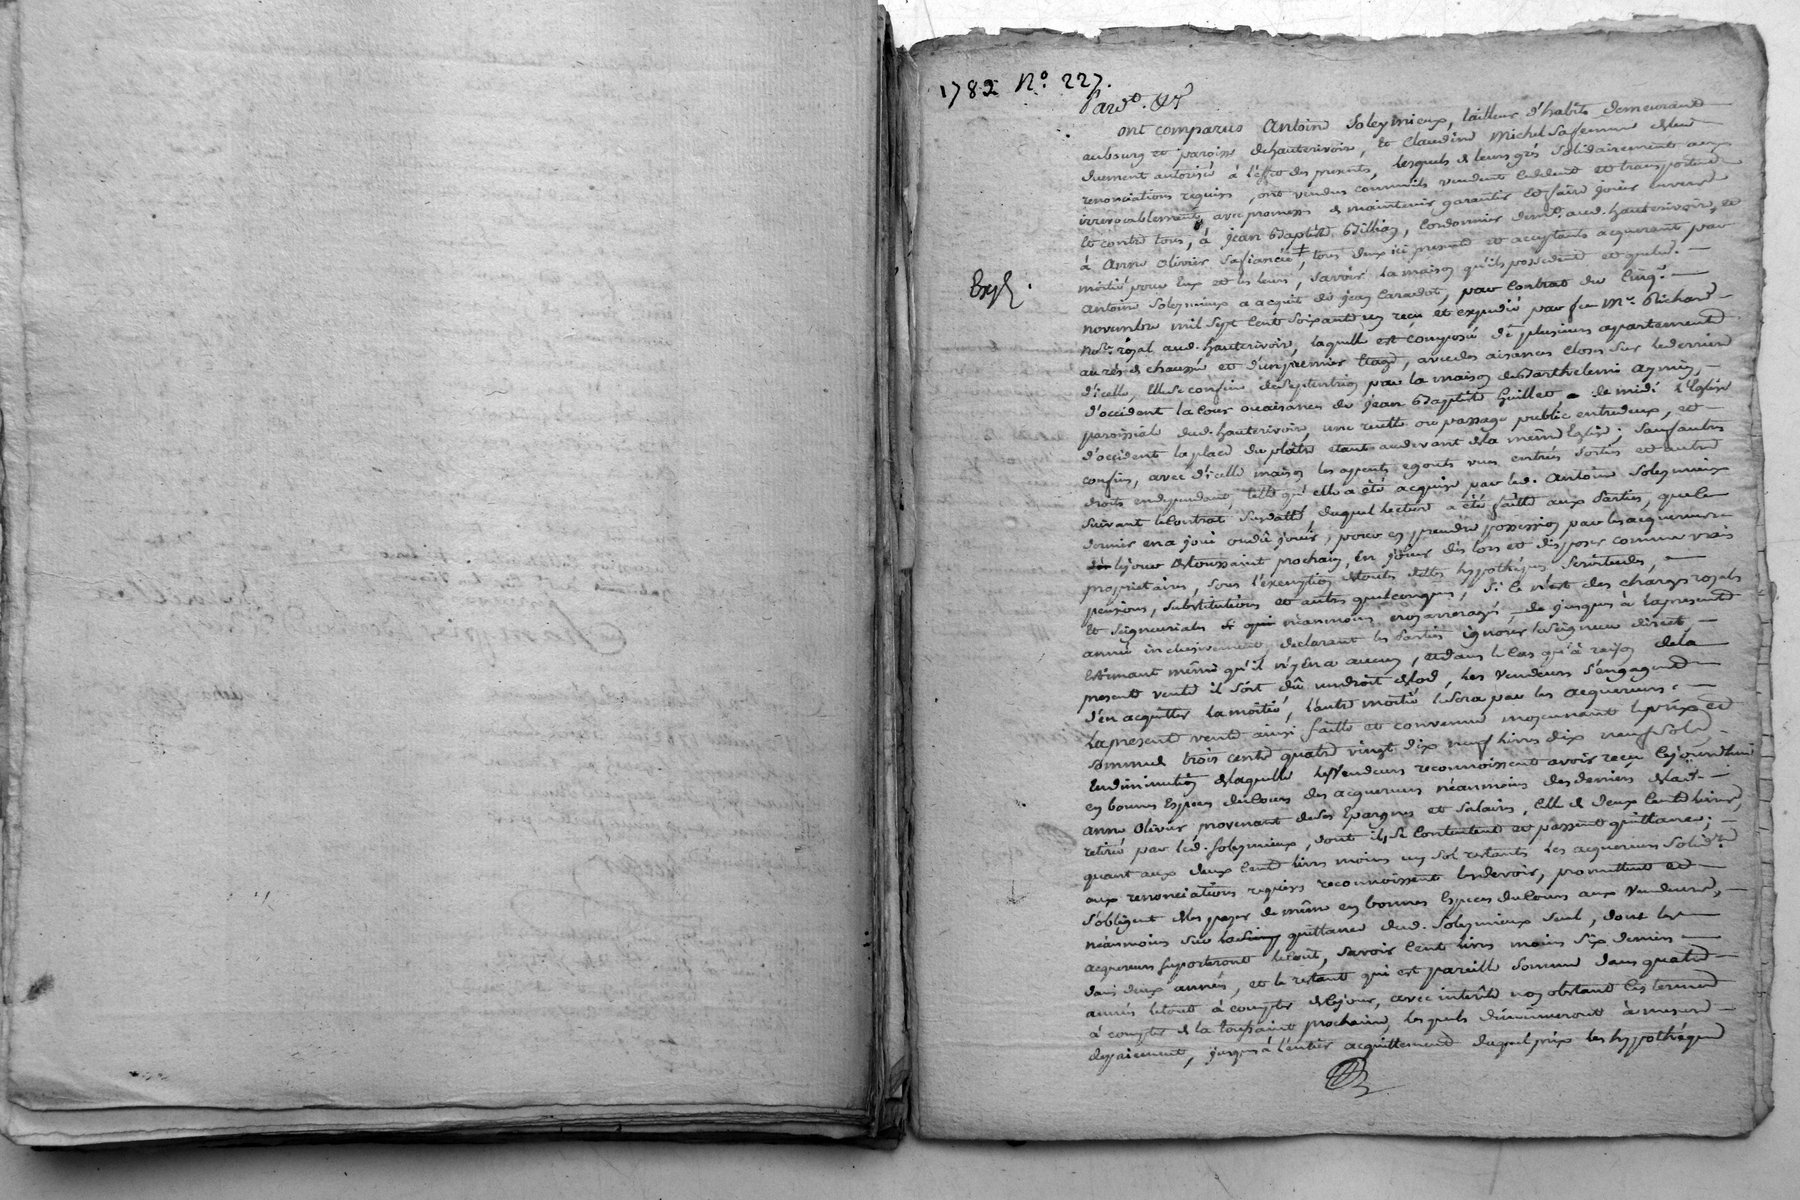 1782 N.º 227.
Pard.º &c
ont comparus Antoine Soleymieux, tailleur d'habits demeurant
au bourg et paroisse de hauterivoire, et Claudine Michel sa femme de lui
duement autorisée à l'effet des presentes, lesquels de leurs grés solidairement aux
renonciations requises, ont vendus comme ils vendent cedent et transportent
irrevocablement avec promesse de maintenir garantir et faire jouir envers
et contre tous, à Jean Baptiste Billion, Cordonnier dem.t aud. hauterivoire, et
à Anne Olivier sa fiancée ╪, tous deux ici present et acceptants acquerant par
moitié pour Eux et les leurs, savoir la maison qu'ils possedent et que led.
Expé.
Antoine Soleymieux a acquit de Jean Caradot, par contrat du Cinq.e
novembre mil sept cent soixante un reçu et expedié par feu M.e Richard
no.re royal aud. hauterivoire, laquelle est composée de plusieurs apartements
au rés de chaussée et d'un premier Etage, avec des aisances closes sur le derriere
d'icelle, Elle se confine de septentrion par la maison de Barthelemi Aymin,
d'occident la Cour ou aisances de Jean Baptiste Guillet, de midi l'Eglise
paroissiale dud. hauterivoire, une ruelle ou passage public entredeux, et
d'occident la place du plâtre etant audevant de la même Eglise, sauf autres
confins, avec d'icelle maison les appents egouts vues entrées sorties et autres
droits en dependants, telle qu'elle a été acquise par led. Antoine Soleymieux
suivant le Contrat susdatté duquel lecture a été faitte aux Parties, que le
dernier en a joui ou dû jouir, pour en prendre possession par les acquereurs
le jour de Toussaint prochain, En jouir dès lors et disposer comme vrais
proprietaires, sous l'exemption de toutes dettes hypothèques servitudes,
pensions, substitutions et autres quelconques, si ce n'est des charges royales
et seigneuriales néanmoins non arreragés, de jusques à la presente
année inclusivement, declarant les parties ignorer le Seigneur direct,
Estimant même qu'il n'y En a aucun, et dans le Cas qu'à raison de la
presente vente il soit dû un droit de lod, les Vendeurs s'engagent
d'en acquitter la moitié, l'autre moitié le sera par les acquereurs.
La presente vente ainsi faitte et convenue moyennant le prix et
sommes trois cents quatre vingt dix neuf livres dix neuf sols,
En diminution de laquelle les Vendeurs reconnoissent avoir reçu cejourd'hui
en bonnes Especes du Cours des acquereurs néanmoins des deniers de lad.
Anne Olivier provenant de ses Epargnes et salaires, celle de deux cents livres,
retirée par led. Soleymieux, dont ils se contentent et passent quittance;
quant aux deux cents livres moins un sol restants les acquereurs solid.t
aux renonciations requises reconnoissent les devoir, promettent et
s'obligent de les payer de même en bonnes Especes du Cours aux Vendeurs,
néanmoins sur quittance dud. Soleymieux seul, dont les
acquereurs suporteront le coût, savoir cent livres moins six deniers
dans deux années, et le restant qui est pareille somme dans quatre
années le tout à compter de ce jour, avec interêts non obstant les termes
à compter de la toussaint prochaine, lesquels diminueront à mesure
de paiement, jusqu'à l'entier acquittement duquel prix les hypothèques